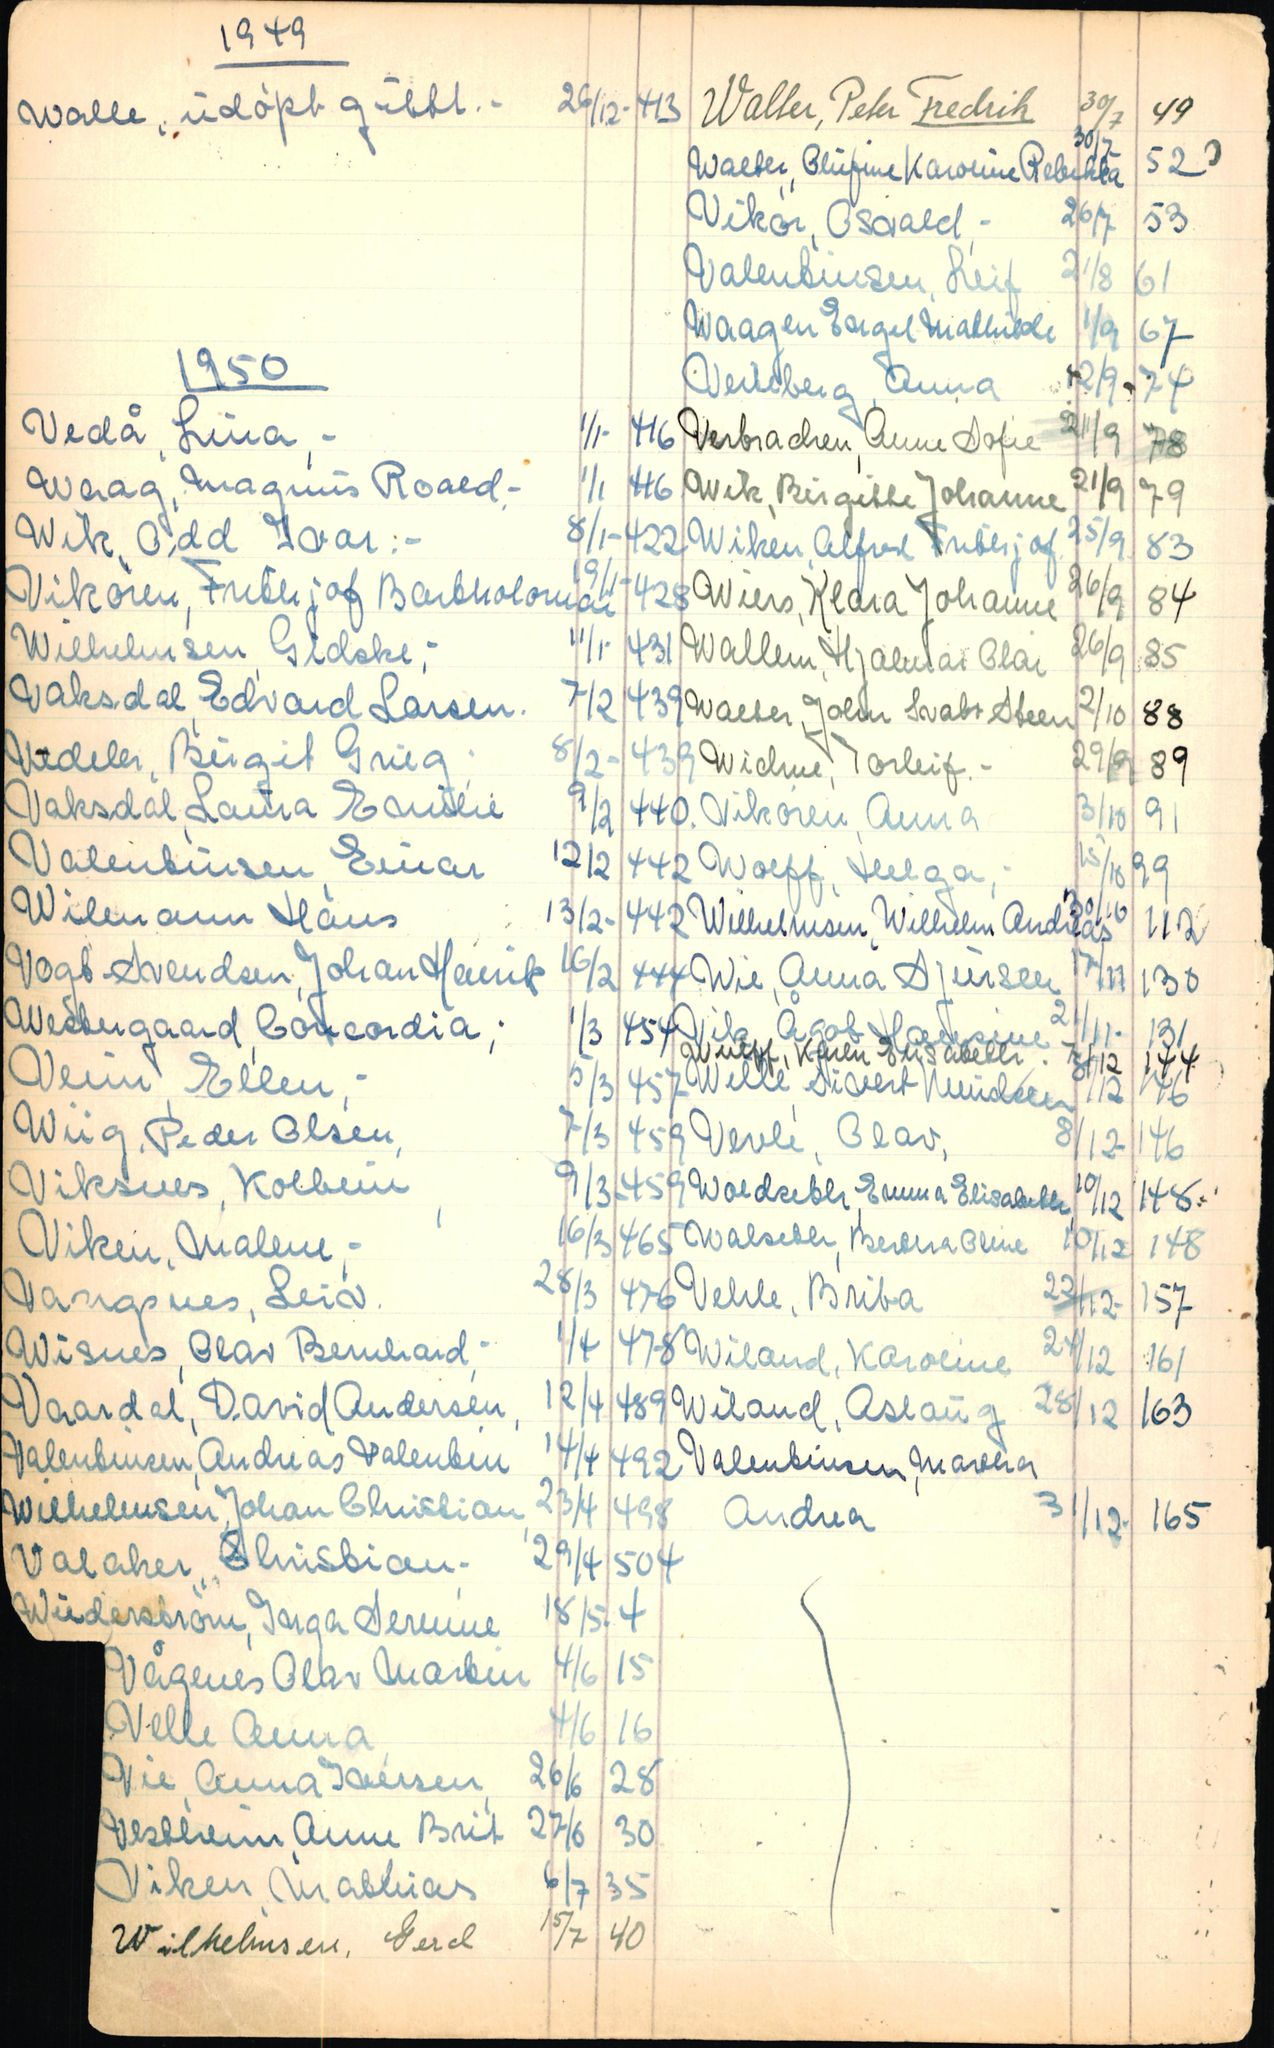 1949
Walle, udöpt guttb. - 26/12- 413
1950
Vedå, Lina, - 1/1- 416
Waag, Magnus Roald. - 1/1 416
Wik, Odd Ivar. - 8/1- 422
Vikören, Frithjof Bartholomäi 9/1- 428
Wilhelmsen, Gidske, - 11/1- 431
Vaksdal, Edvard Larsen. 7/2 439
Vedeler, Birgit Grieg. 8/2- 439
Vaksdal, Laura Emilie 9/2 440.
Valentinsen, Einar 12/2 442
Wilmann Hans 13/2- 442
Vogt-Svendsen, Johan Henrik 16/2 444
Westergaard, Concordia; 1/3 454
Ellen, - 5/3 457
Wiig, Peder Olsen, 7/3 459
Viksnes, Kolbein, 9/3- 459
Viken, Malene, - 16/3 465
Vangsnes, Leiv. 28/3 476
Wisnes, Olav Bernhard, - 1/4 478
Vaardal, David Andersen, 12/4 489
Valentinsen, Andreas Valentin 14/4 492
Wilhelmsen, Johan Christian, 23/4 498
Valaker, Christian. - 29/4 504
Wiederström, Inga Serine 18/5- 4
Vågenes Olav Martin 4/6 15
Velle Anna 4/6 16
Vie, Anna Iversen, 26/6 28
Vestheim, Anne Brit 27/6 30
Viken, Mathias 6/7 35
Wilhelmsen, Gerd 15/7 40
Walter, Peter Fredrik 30/7 49
Walter, Karoline Rebekka 30/7 52
Vikör, Osvald, - 26/7 53
Valentinsen, Leif 21/8 61
Waagen Engel Mathilde 1/9 67
Anna 12/9 - 74
Anne Sofie 21/9 78
Wik, Birgitte Johanne 21/9 79
Wiken, Alfred Frithjof 25/9 83
Wiers, Klara Johanne 26/9 84
Wallem, Hjalmar Olai 26/9 85
Walter, John Svabo Steen 2/10 88
Wichne, Torleif. - 29/9 89
Vikören, Anna 3/10 91
Wolff, Helga, - 15/10 99
Wilhelmsen, Wilhelm Andreas 30/10 112
Wie, Anna Sjursen 17/11 130
Vik, Agot 21/11- 131
Wulff, Karen Elisabeth. 7/12 144
Wille, Sivert Knudsen /12 146
Vevle, Olav, 8/12- 146
Woldseth, Emma Elisabeth, 10/12 148.
Walseth, Berthea Oline 10/12 148
Vehle, Brita 22/12- 157
Wiland, Karoline 24/12 161
Wiland, Aslaug 28/12 163
Valentinsen, Martha
Andrea 31/12- 165